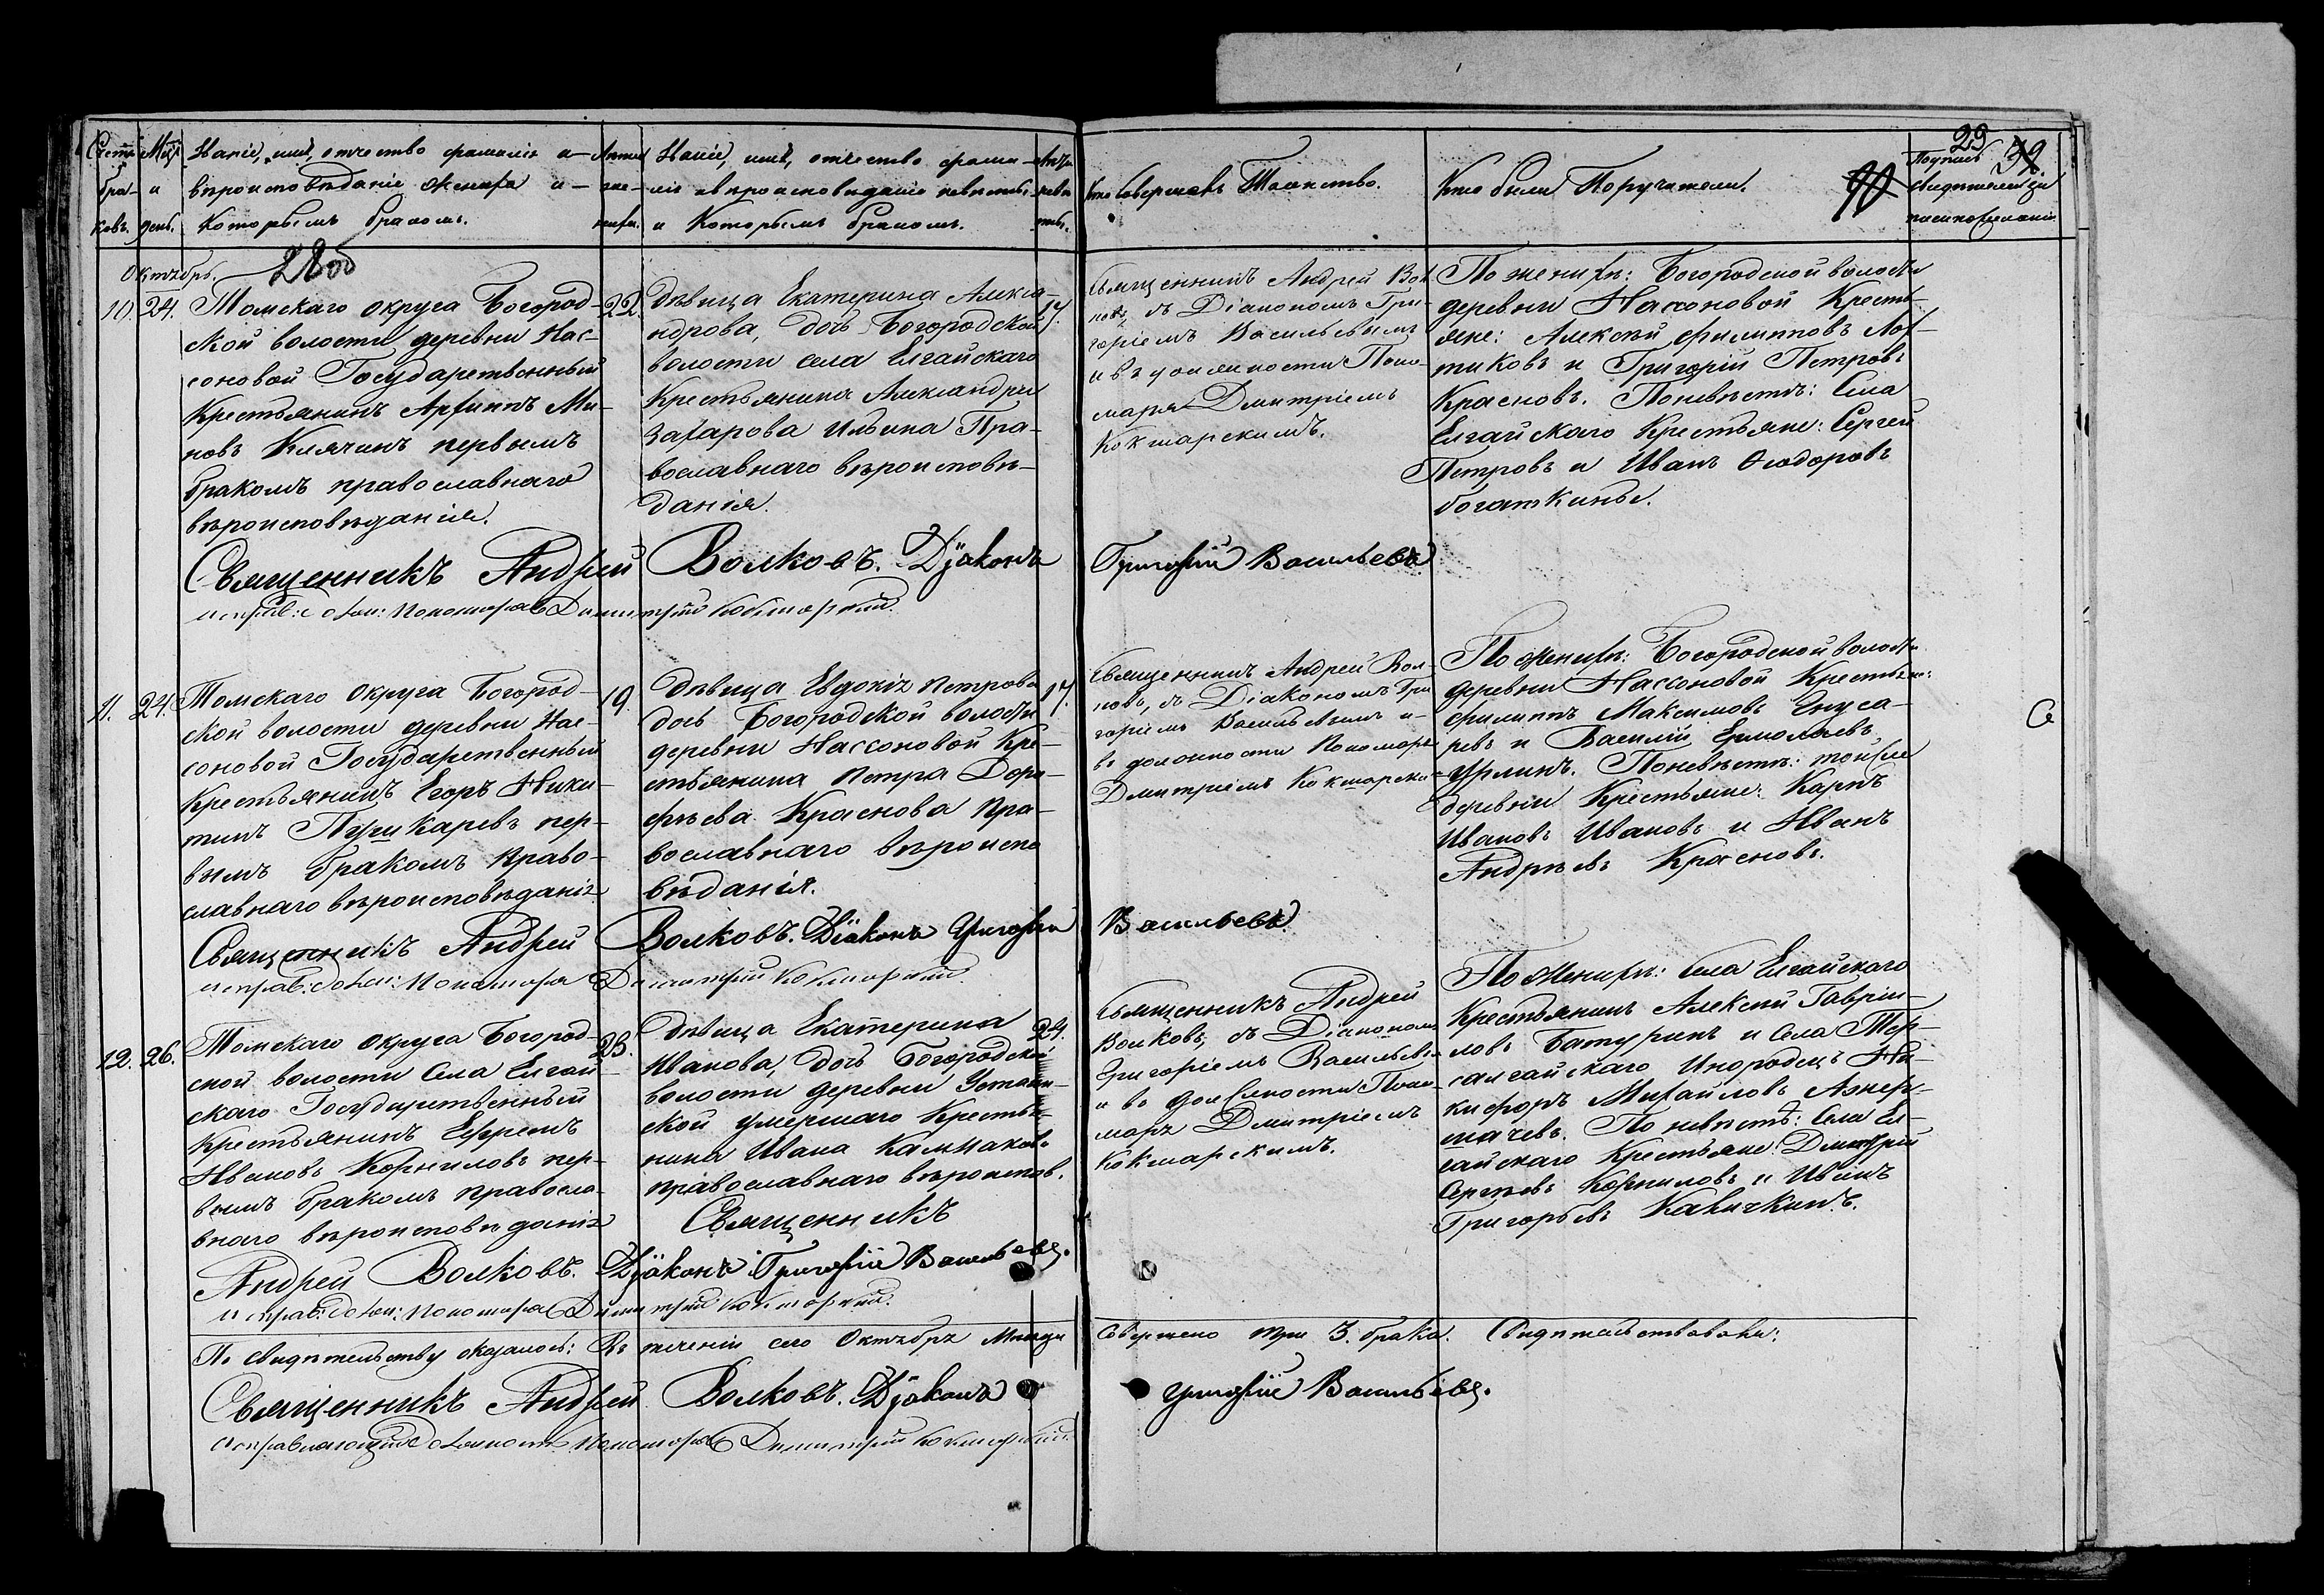 Счетъ бра- ковъ.
Мѣц. и день.
Званіе, имя, отчество фамилія и
вѣроисповѣданіе жениха и
которымъ бракомъ.
Лѣта же- ниха.
Званіе, имя, отчество фами-
лія и вѣроисповѣданіе невѣсты
и которымъ бракомъ.
Лѣта невѣ- сты.
Кто совершалъ Таинство.
Кто были Поручители.
29
Подпись
свидѣтелей
по желанію
28об
Октябрь.
10. 24.
Томскаго округа Богород-
ской волости деревни Нас-
соновой Государственный
Крестьянинъ Архипъ Ми-
новъ Клячинъ первымъ
бракомъ православнаго
вѣроисповѣданія.
22.
Дѣвица Екатерина Алекса-
ндрова, дочь Богородской
волости села Елгайскаго
Крестьянина Александра
Захарова Ильина Пра-
вославнаго вѣроисповѣ-
данія.
17.
Священникъ Андрей Вол-
ковъ съ Діакономъ Гри-
горіемъ Васильевымъ
и въ должности Поно-
маря Дмитріемъ
Кокшарскимъ.
По женихѣ: Богородской волости
деревни Нассоновой Кресть-
яне: Алексѣй Филипповъ Лох-
тиковъ и Григорій Петровъ
Красновъ. По невѣстѣ: Села
Елгайскаго Крестьяне: Сергей
Петровъ и Иванъ Ѳеодоровъ
богаткины.
Священникъ Андрей Волковъ. Діаконъ Григорій Васильевъ
исправ: долж: Пономаря Димитрій Кокшарскій.
11. 24.
Томскаго округа Богород-
ской волости деревни Нас-
соновой Государственный
Крестьянинъ Егоръ Ники-
тинъ Пушкаревъ пер-
вымъ бракомъ право-
славнаго вѣроисповѣданія
19.
Дѣвица Евдокія Петрова
дочь Богородской волости
деревни Нассоновой Кре-
стьянина Петра Доро-
фѣева Краснова Пра-
вославнаго вѣроиспо
вѣданія.
17.
Священникъ Андрей Вол-
ковъ, съ Діакономъ Гри
горіемъ Васильевымъ и
въ должности Пономаря
Дмитріемъ Кокшарски
По женихѣ: Богородской волости
деревни Нассоновой Крестьяне:
Филиппъ Максимовъ
и Василій Ермолаевъ
По невѣстѣ: той же
деревни Крестьяне: Карпъ
Ивановъ Ивановъ и Иванъ
Андрѣевъ Красновъ.
Священникъ Андрей Волковъ. Діаконъ Григорій Васильевъ
исправ: долж: Пономаря Димитрій Кокшарскій.
12. 26.
Томскаго округа Богород-
ской волости Села Елгай-
скаго Государственный
Крестьянинъ Ефремъ
Ивановъ Корниловъ пер-
вымъ бракомъ правосла-
внаго вѣроисповѣданія
23.
Дѣвица Екатерина
Иванова, дочь Богородской
волости деревни
умершаго Крестья-
нина Ивана Калмакова
православнаго вѣроисповѣ.
24.
Священникъ Андрей
Волковъ, съ Діакономъ
Григоріемъ Васильевы
и въ должности Поно-
маря Дмитріемъ
Кокшарскимъ.
По женихѣ: Села Елгайскаго
Крестьянинъ Алексѣй Гавріи-
ловъ Батуринъ и Села Тер-
салгайскаго Инородецъ Ни-
кифоръ Михайловъ
По невѣстѣ: Села Ел-
гайскаго Крестьяне: Дмитрій
Сергѣевъ Корниловъ и Иванъ
Григорьевъ Кавичкинъ.
Священникъ
Андрей Волковъ. Діаконъ Григорій Васильевъ.
исправ: долж: Пономаря Димитрій Кокшарскій.
По свидѣтельству оказалось: Въ теченіи сего Октября Мѣсяца Совершено три 3. брака. Свидѣтельствовали:
Священникъ Андрей Волковъ. Діаконъ Григорій Васильевъ.
исправляющій должность Пономаря Димитрій Кокшарскій.